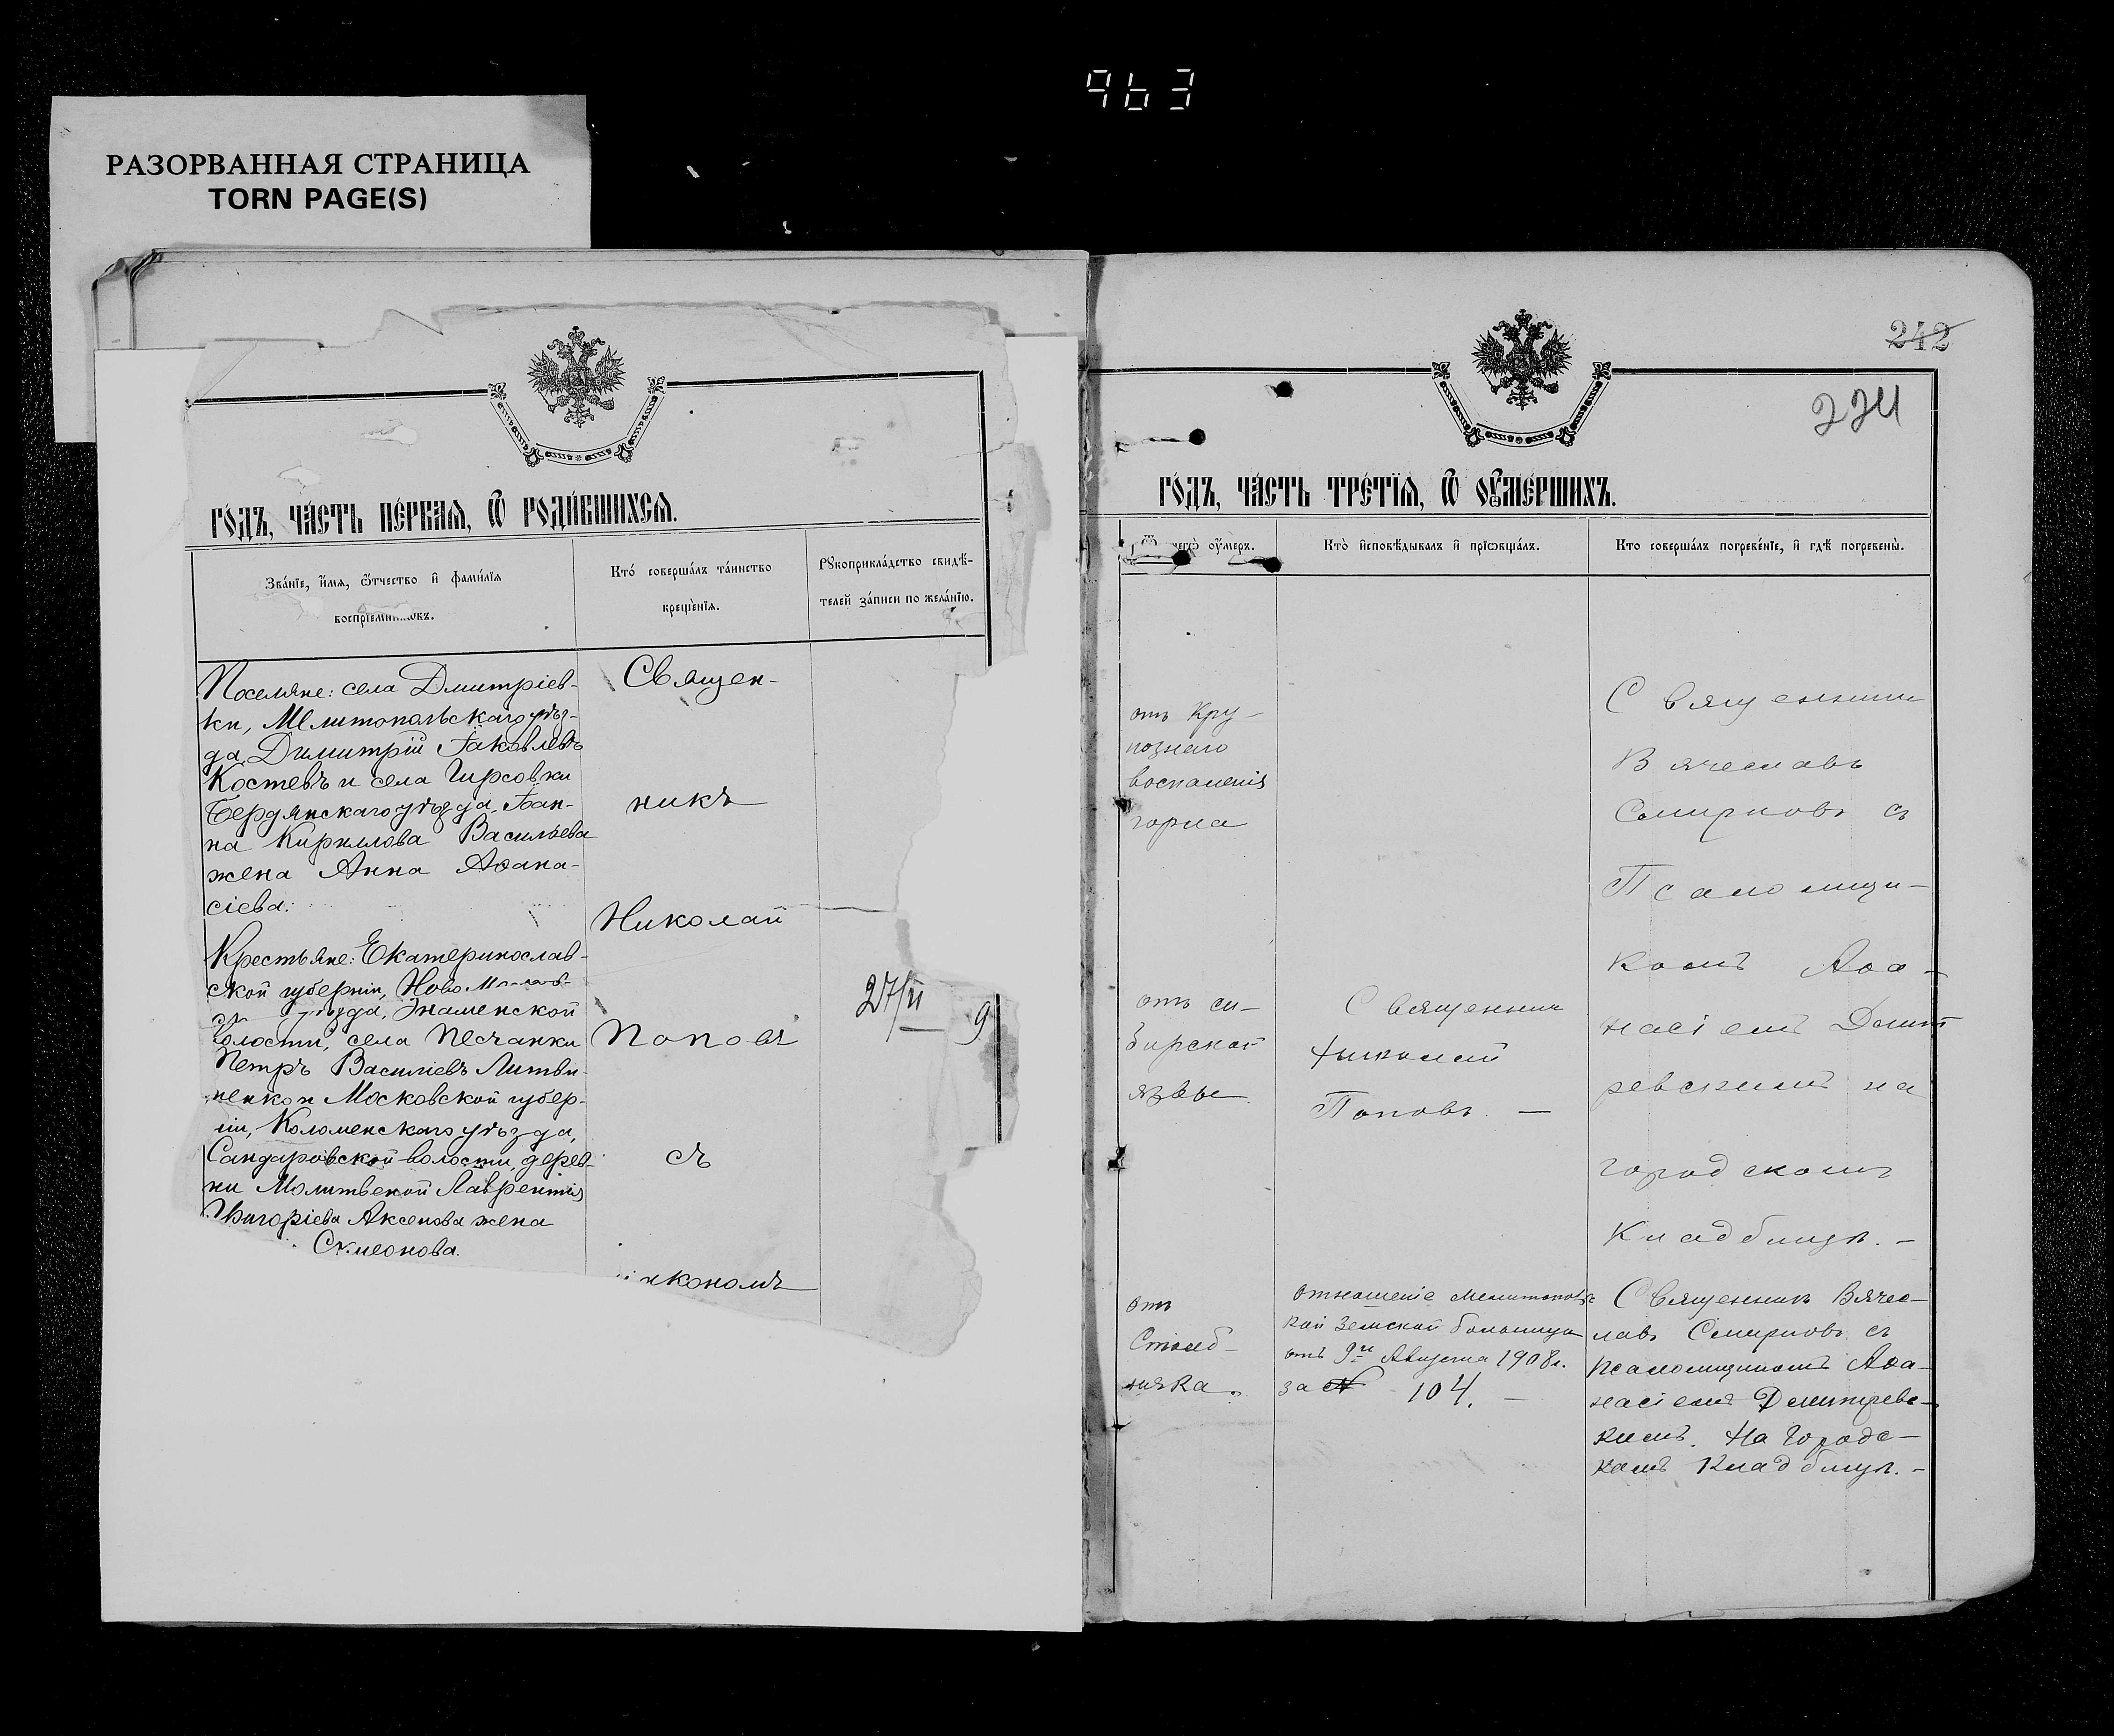 963
РАЗОРВАННАЯ СТРАНИЦА
TORN PAGE(S)
го́дъ, ча́сть пе́рваѧ, ѡ҆ роди́вшихсѧ.
Зва́нїе, и҆́мѧ, ѻ҆́тчество и҆ фами́лїѧ
воспрїе́мниковъ.
Кто́ соверша́лъ та́инство
креще́нїѧ.
Рꙋкоприкла́дство свидѣ́-
телей за́писи по жела́нїю.
Поселяне: села Дмитріев-
ки, Мелитопольскаго уѣз-
да, Димитрій Іаковлевъ
Костевъ и села Гирсовки
Бердянскаго уѣзда, Іоан-
на Кирилова Васильева
жена Анна Аѳана-
сіева.
Крестьяне: Екатеринослав-
ской губерніи, Ново
Знаменской
волости, села Песчанки
Петръ Василіевъ Литви-
ненко и Московской губер-
ніи, Коломенскаго уѣзда,
Сандаровской волости, дерев-
ни Молитвеной Лаврентія
Григоріева Аксенова жена
Симеонова.
Священ-
никъ
Николай
Поповъ
съ
іакономъ
27/II
9
242
224
го́дъ, ча́сть тре́тїѧ, ѡ҆ ᲂу҆ме́ршихъ.
Ѿ чегѡ̀ ᲂу҆́меръ.
Кто̀ и҆сповѣ́дывалъ и҆ прїѡбща́лъ.
Кто соверша́лъ погребе́нїе, и҆ гдѣ̀ погребены̀.
отъ Кру-
познаго
воспаленія
горла
отъ си-
бирской
язвы
Священник
Николай
Поповъ. —
Священник
Вячеславъ
Смирновъ съ
Псаломщи-
комъ Аѳа-
насіемъ Дмит
ревскимъ на
городскомъ
Кладбищѣ. —
отъ
Столб-
няка.
отношеніе Мелитопольс
кой Земской больницы
отъ 9го Августа 1908 г.
за № 104. —
Священникъ Вячес-
лавъ Смирновъ съ
псаломщикомъ Аѳа-
насіемъ Дмитревс-
кимъ. На Городс-
комъ Кладбищѣ. —